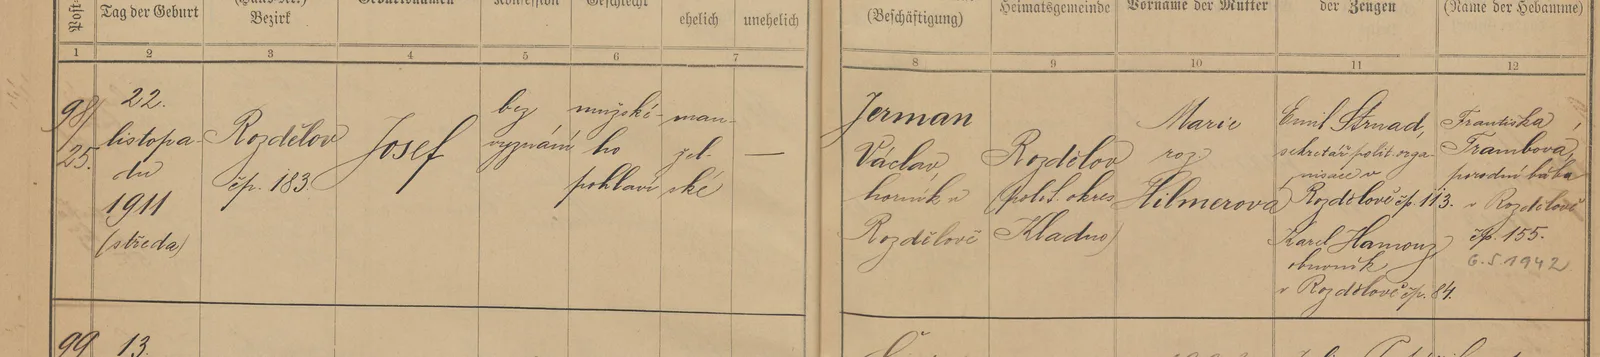 Tag der Geburt
Bezirk
ehelich
unehelich
(Beschäftigung)
Heimatsgemeinde
Vorname der Mutter
der Zeugen
(Name der Hebamme)
1 2 3 4 5 6 7 8 9 10 11 12
98/
25.
22.
listopa-
du
1911
(středa)
Rozdělov
čp. 183.
Josef
bez
vyznání
mužské-
ho
pohlaví
man-
žel-
ské
—
Jerman
Václav,
horník v
Rozdělově
Rozdělov
(polit. okres
Kladno)
Marie
roz
Hilmerová
Emil Strnad,
sekretář polit. orga-
nisace v
Rozdělově čp. 113.
Karel Hamouz
obuvník
v Rozdělově čp. 84.
Františka
Trambová,
porodní bába
v Rozdělově
čp. 155.
6.5.1942
99
13.